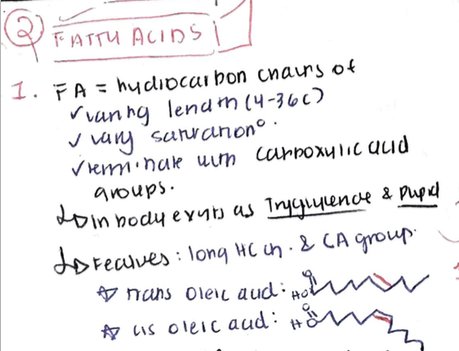 2 FATTY ACIDS
1. FA = hydrocarbon chains of
✓ varing length (4-36C)
✓ vary saturation°.
✓ terminate with carboxylic acid
groups.
↳ in body exists as Tryglyceride &
↳ Features: long HC ch. & CA group.
☆ trans oleic acid: HO O
☆ cis oleic acid: HO O